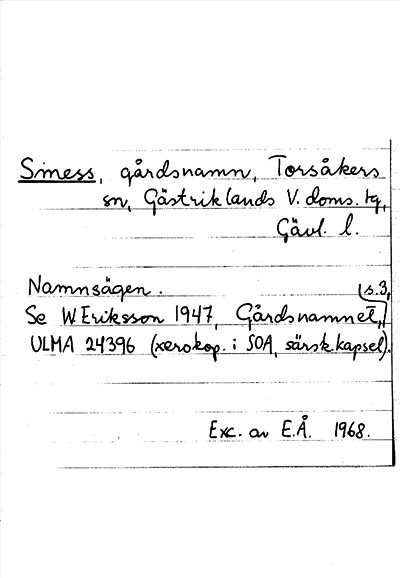 Siness, gårdsnamn, Torsåkers
sn, Gästriklands V. doms. tg,
Gävl. l.
Namnsägen.
Se W Eriksson 1947, Gårdsnamnet, s. 3,
ULMA 24396 (xerokop. i SOA, särsk. kapsel).
Exc. av E.Å. 1968.